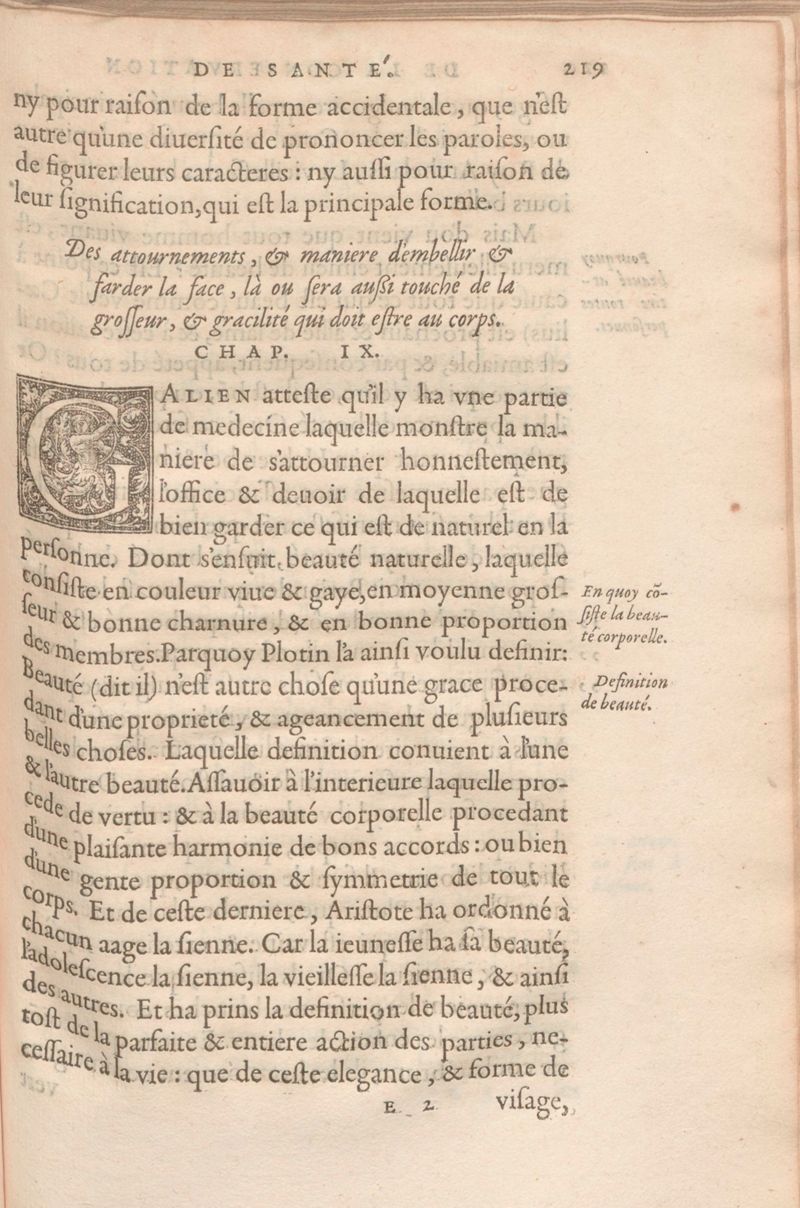 DE SANTÉ. 219
ny pour raiſon de la forme accidentale, que n'eſt
autre qu'une diuerſité de prononcer les paroles, ou
de figurer leurs caracteres : ny auſſi pour raiſon de
leur ſignification, qui eſt la principale forme.
Des attournements, & maniere d'embellir &
farder la face, là ou ſera auſſi touché de la
groſſeur, & gracilité qui doit eſtre au corps.
CHAP. IX.
GALIEN atteſte qu'il y ha vne partie
de medecine laquelle monſtre la ma-
niere de s'attourner honneſtement,
l'office & deuoir de laquelle eſt de
bien garder ce qui eſt de naturel en la
perſonne. Dont s'enſuit beauté naturelle, laquelle
conſiſte en couleur viue & gaye, en moyenne groſ-
ſeur & bonne charnure, & en bonne proportion
des membres. Parquoy Plotin l'a ainſi voulu definir:
Beauté (dit il) n'eſt autre choſe qu'une grace proce-
dant d'une proprieté, & ageancement de pluſieurs
belles choſes. Laquelle definition conuient à l'une
& l'autre beauté. Aſſauoir à l'interieure laquelle pro-
cede de vertu : & à la beauté corporelle procedant
d'une plaiſante harmonie de bons accords : ou bien
d'une gente proportion & ſymmetrie de tout le
corps. Et de ceſte derniere, Ariſtote ha ordonné à
chacun aage la ſienne. Car la ieuneſſe ha ſa beauté,
l'adoleſcence la ſienne, la vieilleſſe la ſienne, & ainſi
des autres. Et ha prins la definition de beauté, plus
toſt de la parfaite & entiere action des parties, ne-
ceſſaire à la vie : que de ceſte elegance, & forme de
E 2 viſage,
En quoy cõ-
ſiſte la beau-
té corporelle.
Definition
de beauté.